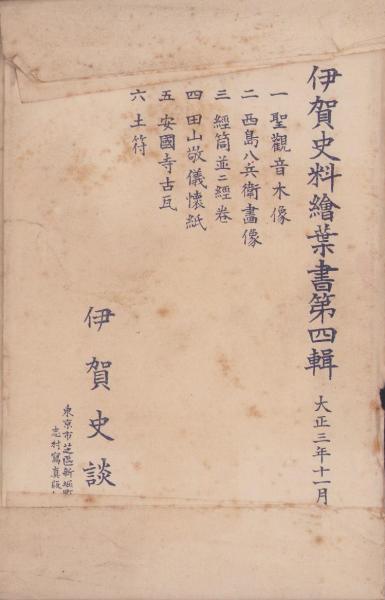 伊賀史料繪葉書第四輯 大正三年十一月
一 聖觀音木像
二 西島八兵衛畫像
三 經筒並ニ經卷
四 田山敬儀懷紙
五 安國寺古瓦
六 土符
伊賀史談
東京市芝區新堀町
志村寫眞版